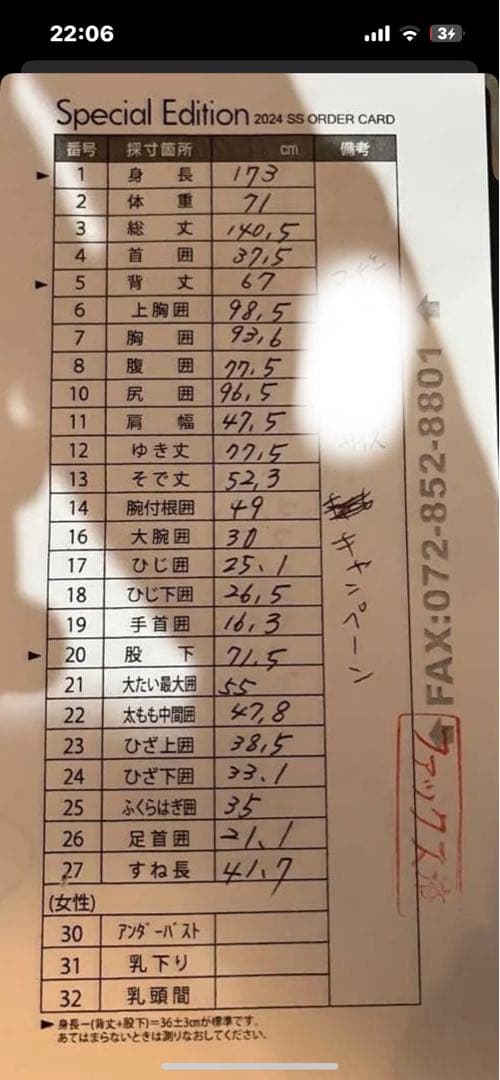 22:06
3
Special Edition 2024 SS ORDER CARD
番号 採寸箇所 cm 備考
► 1 身長 173
2 体重 71
3 総丈 140,5
4 首囲 37,5
► 5 背丈 67
6 上胸囲 98,5
7 胸囲 93,6
8 腹囲 77,5
10 尻囲 96,5
11 肩幅 47,5
12 ゆき丈 77,5
13 そで丈 52,3
14 腕付根囲 49
16 大腕囲 30
17 ひじ囲 25.1
18 ひじ下囲 26,5
19 手首囲 16,3
► 20 股下 71.5
21 大たい最大囲 55
22 太もも中間囲 47,8
23 ひざ上囲 38,5
24 ひざ下囲 33.1
25 ふくらはぎ囲 35
26 足首囲 21,1
27 すね長 41.7
(女性)
30 アンダーバスト
31 乳下り
32 乳頭間
キャンペーン
FAX:072-852-8801
ファックス済
► 身長ー(背丈+股下)=36±3cmが標準です。
あてはまらないときは測りなおしてください。